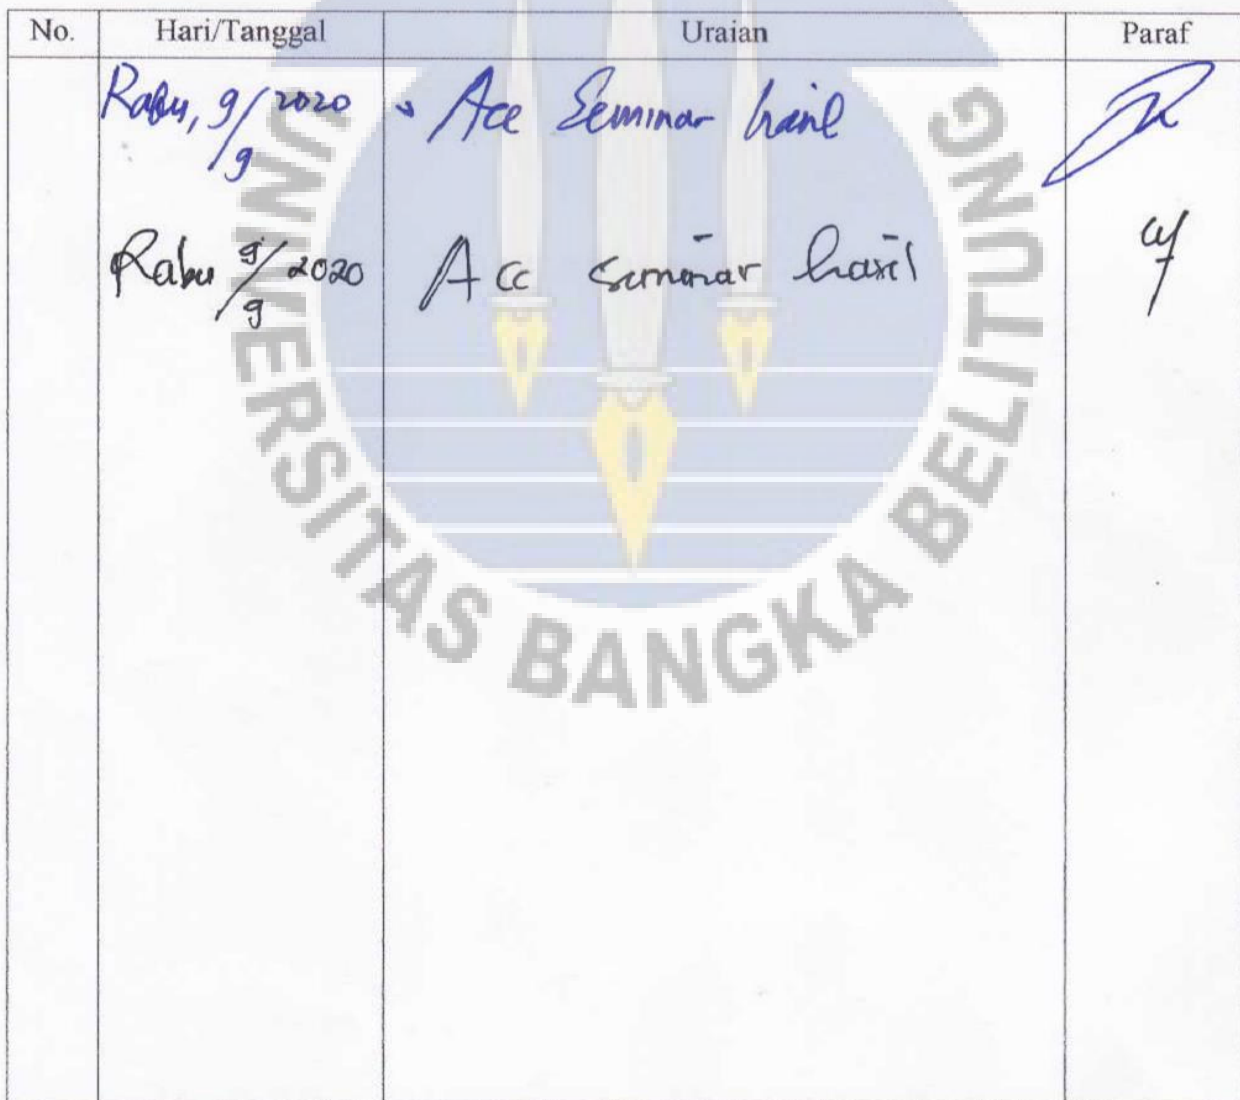 No. Hari/Tanggal Uraian Paraf
Rabu, 9/9 2020 Acc Seminar hasil
Rabu 9/9 2020 Acc seminar hasil
UNIVERSITAS BANGKA BELITUNG